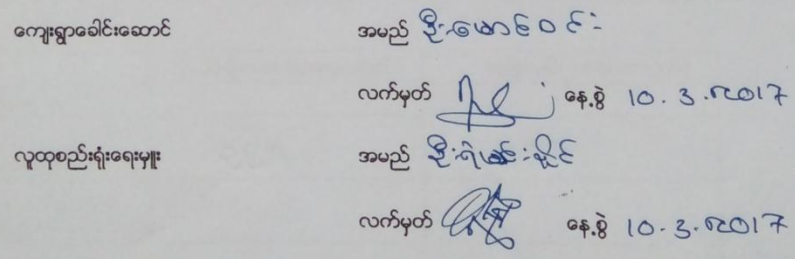 ကျေးရွာခေါင်းဆောင် အမည် ဦးမောင်ဝင်း
လက်မှတ် နေ့စွဲ 10.3.2017
လူထုစည်းရုံးရေးမှူး အမည် ဦးရဲမင်းနိုင်
လက်မှတ် နေ့စွဲ 10.3.2017